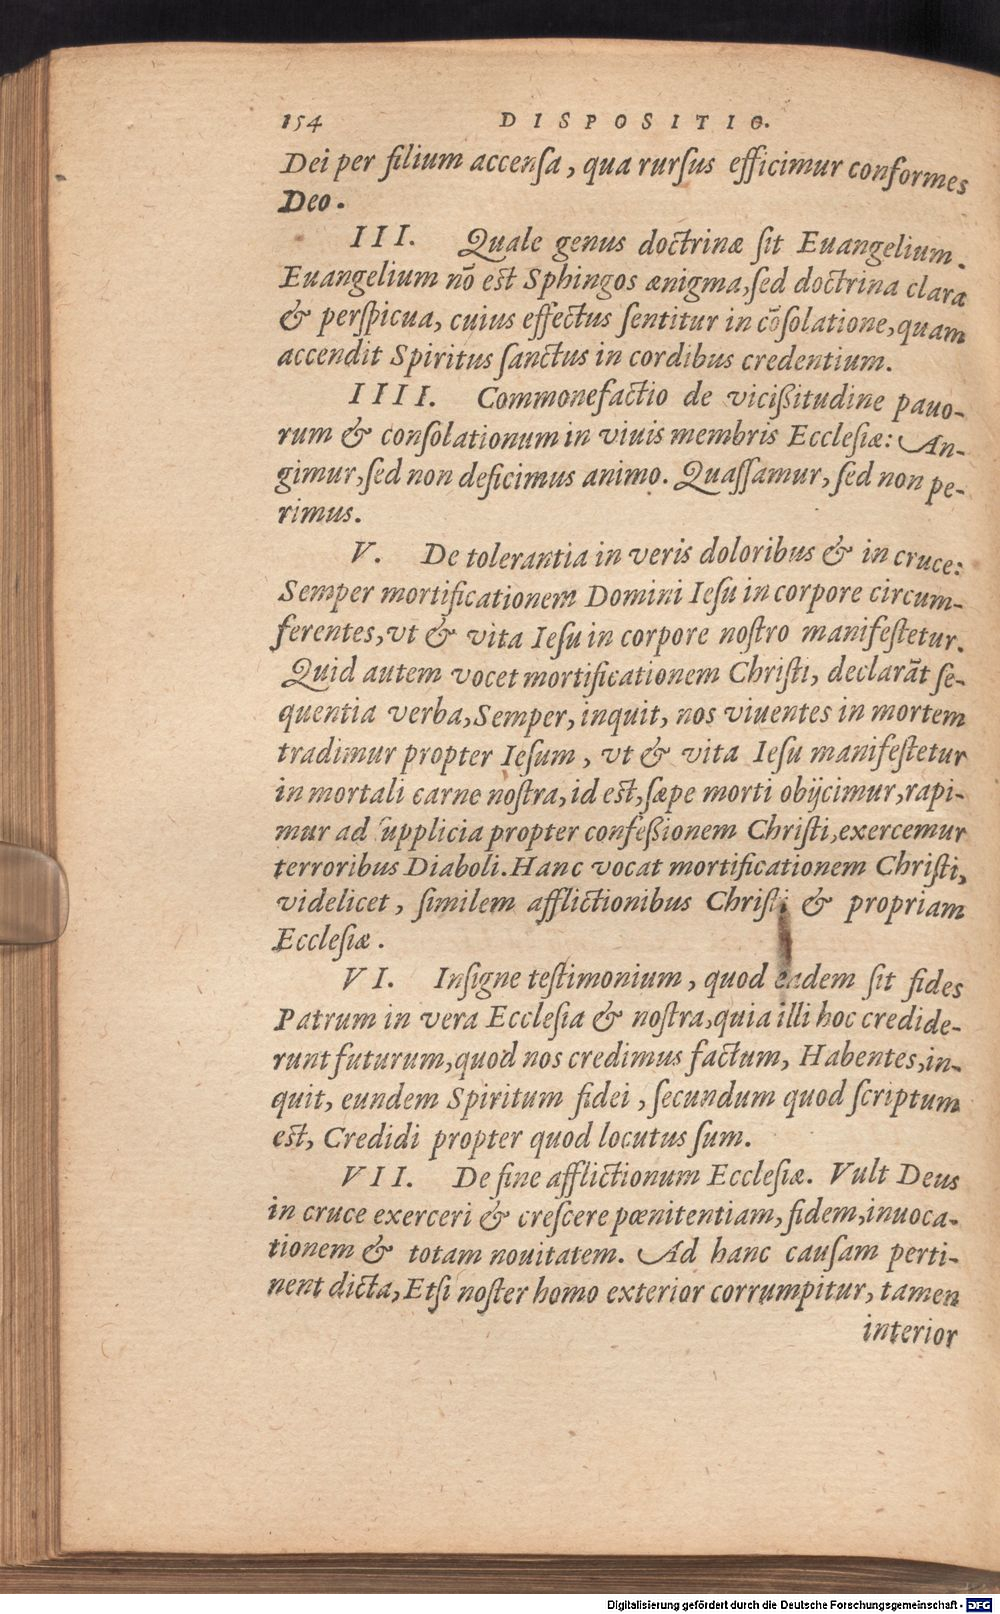 154 DISPOSITIO.
Dei per filium accensa, qua rursus efficimur conformes
Deo.
III. Quale genus doctrinæ sit Euangelium.
Euangelium nõ est Sphingos ænigma, sed doctrina clara
& perspicua, cuius effectus sentitur in cõsolatione, quam
accendit Spiritus sanctus in cordibus credentium.
IIII. Commonefactio de vicißitudine pauo-
rum & consolationum in viuis membris Ecclesiæ: An-
gimur, sed non deficimus animo. Quassamur, sed non pe-
rimus.
V. De tolerantia in veris doloribus & in cruce:
Semper mortificationem Domini Iesu in corpore circum-
ferentes, vt & vita Iesu in corpore nostro manifestetur.
Quid autem vocet mortificationem Christi, declarãt se-
quentia verba, Semper, inquit, nos viuentes in mortem
tradimur propter Iesum, vt & vita Iesu manifestetur
in mortali carne nostra, id est, sæpe morti obijcimur, rapi-
mur ad supplicia propter confeßionem Christi, exercemur
terroribus Diaboli. Hanc vocat mortificationem Christi,
videlicet, similem afflictionibus Christi & propriam
Ecclesiæ.
VI. Insigne testimonium, quod eadem sit fides
Patrum in vera Ecclesia & nostra, quia illi hoc credide-
runt futurum, quod nos credimus factum, Habentes, in-
quit, eundem Spiritum fidei, secundum quod scriptum
est, Credidi propter quod locutus sum.
VII. De fine afflictionum Ecclesiæ. Vult Deus
in cruce exerceri & crescere pœnitentiam, fidem, inuoca-
tionem & totam nouitatem. Ad hanc causam perti-
nent dicta, Etsi noster homo exterior corrumpitur, tamen
interior
Digitalisierung gefördert durch die Deutsche Forschungsgemeinschaft - DFG